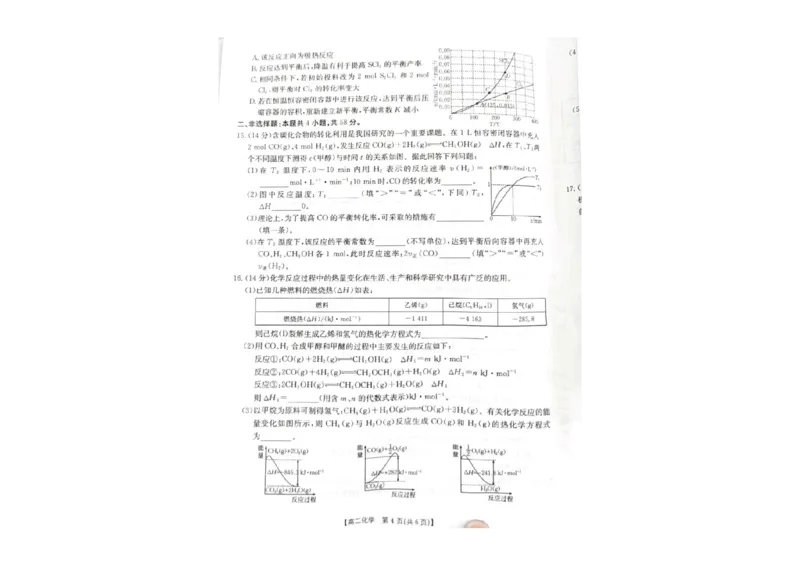 A.该反应正向为吸热反应
B.反应达到平衡后,降温有利于提高SCl₂的平衡产率
C.相同条件下,若初始投料改为2 mol S₂Cl₂和2 mol
Cl₂,则平衡时Cl₂的转化率变大
D.若在恒温恒容密闭容器中进行该反应,达到平衡后压
缩容器的容积,重新建立新平衡,平衡常数K减小
0 100 200 300
T/℃
二、非选择题:本题共4小题,共58分。
15.(14分)含碳化合物的转化利用是我国研究的一个重要课题。在1 L恒容密闭容器中充入
2 mol CO(g)、4 mol H₂(g),发生反应CO(g)+2H₂(g)⇌CH₃OH(g) ΔH,在T₁、T₂两
个不同温度下测得c(甲醇)与时间t的关系如图。据此回答下列问题:
(1)在T₂温度下,0~10 min内用H₂表示的反应速率v(H₂)=
______mol·L⁻¹·min⁻¹;10 min时,CO的转化率为______。
(2)图中反应温度:T₁______(填“>”“=”或“<”,下同)T₂,
ΔH______0。
c(甲醇)/(mol·L⁻¹)
T₁
T₂
0 10 t/min
(3)理论上,为了提高CO的平衡转化率,可采取的措施有______
(填一条)。
(4)在T₂温度下,该反应的平衡常数为______(不写单位);达到平衡后向容器中再充入
CO、H₂、CH₃OH各1 mol,此时反应速率:2v正(CO)______(填“>”“=”或“<”)
v逆(H₂)。
16.(14分)化学反应过程中的热量变化在生活、生产和科学研究中具有广泛的应用。
(1)已知几种燃料的燃烧热(ΔH)如表:
燃料 乙烯(g) 己烷(C₆H₁₄,l) 氢气(g)
燃烧热(ΔH)/(kJ·mol⁻¹) -1 411 -4 163 -285.8
则己烷(l)裂解生成乙烯和氢气的热化学方程式为____________。
(2)用CO、H₂合成甲醇和甲醚的过程中主要发生的反应如下:
反应①:CO(g)+2H₂(g)⇌CH₃OH(g) ΔH₁=m kJ·mol⁻¹
反应②:2CO(g)+4H₂(g)⇌CH₃OCH₃(g)+H₂O(g) ΔH₂=n kJ·mol⁻¹
反应③:2CH₃OH(g)⇌CH₃OCH₃(g)+H₂O(g) ΔH₃
则ΔH₃=______(用含m、n的代数式表示)kJ·mol⁻¹。
(3)以甲烷为原料可制得氢气:CH₄(g)+H₂O(g)⇌CO(g)+3H₂(g)。有关化学反应的能
量变化如图所示,则CH₄(g)与H₂O(g)反应生成CO(g)和H₂(g)的热化学方程式
为______。
能量 CH₄(g)+2O₂(g)
CO₂(g)+2H₂O(g)
反应过程
能量 CO(g)+½O₂(g)
CO₂(g)
反应过程
能量 ½O₂(g)+H₂(g)
H₂O(g)
反应过程
【高二化学 第4页(共6页)】
17.(